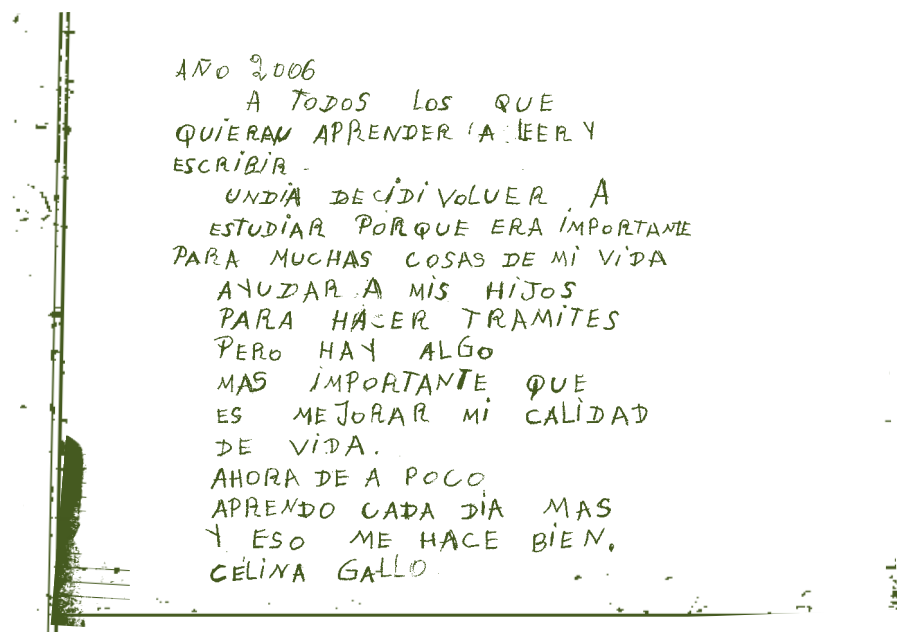 AÑO 2006
A TODOS LOS QUE
QUIERAN APRENDER A LEER Y
ESCRIBIR.
UNDIA DECIDI VOLUER A
ESTUDIAR PORQUE ERA IMPORTANTE
PARA MUCHAS COSAS DE MI VIDA
AYUDAR A MIS HIJOS
PARA HACER TRAMITES
PERO HAY ALGO
MAS IMPORTANTE QUE
ES MEJORAR MI CALIDAD
DE VIDA.
AHORA DE A POCO
APRENDO CADA DIA MAS
Y ESO ME HACE BIEN.
CELINA GALLO